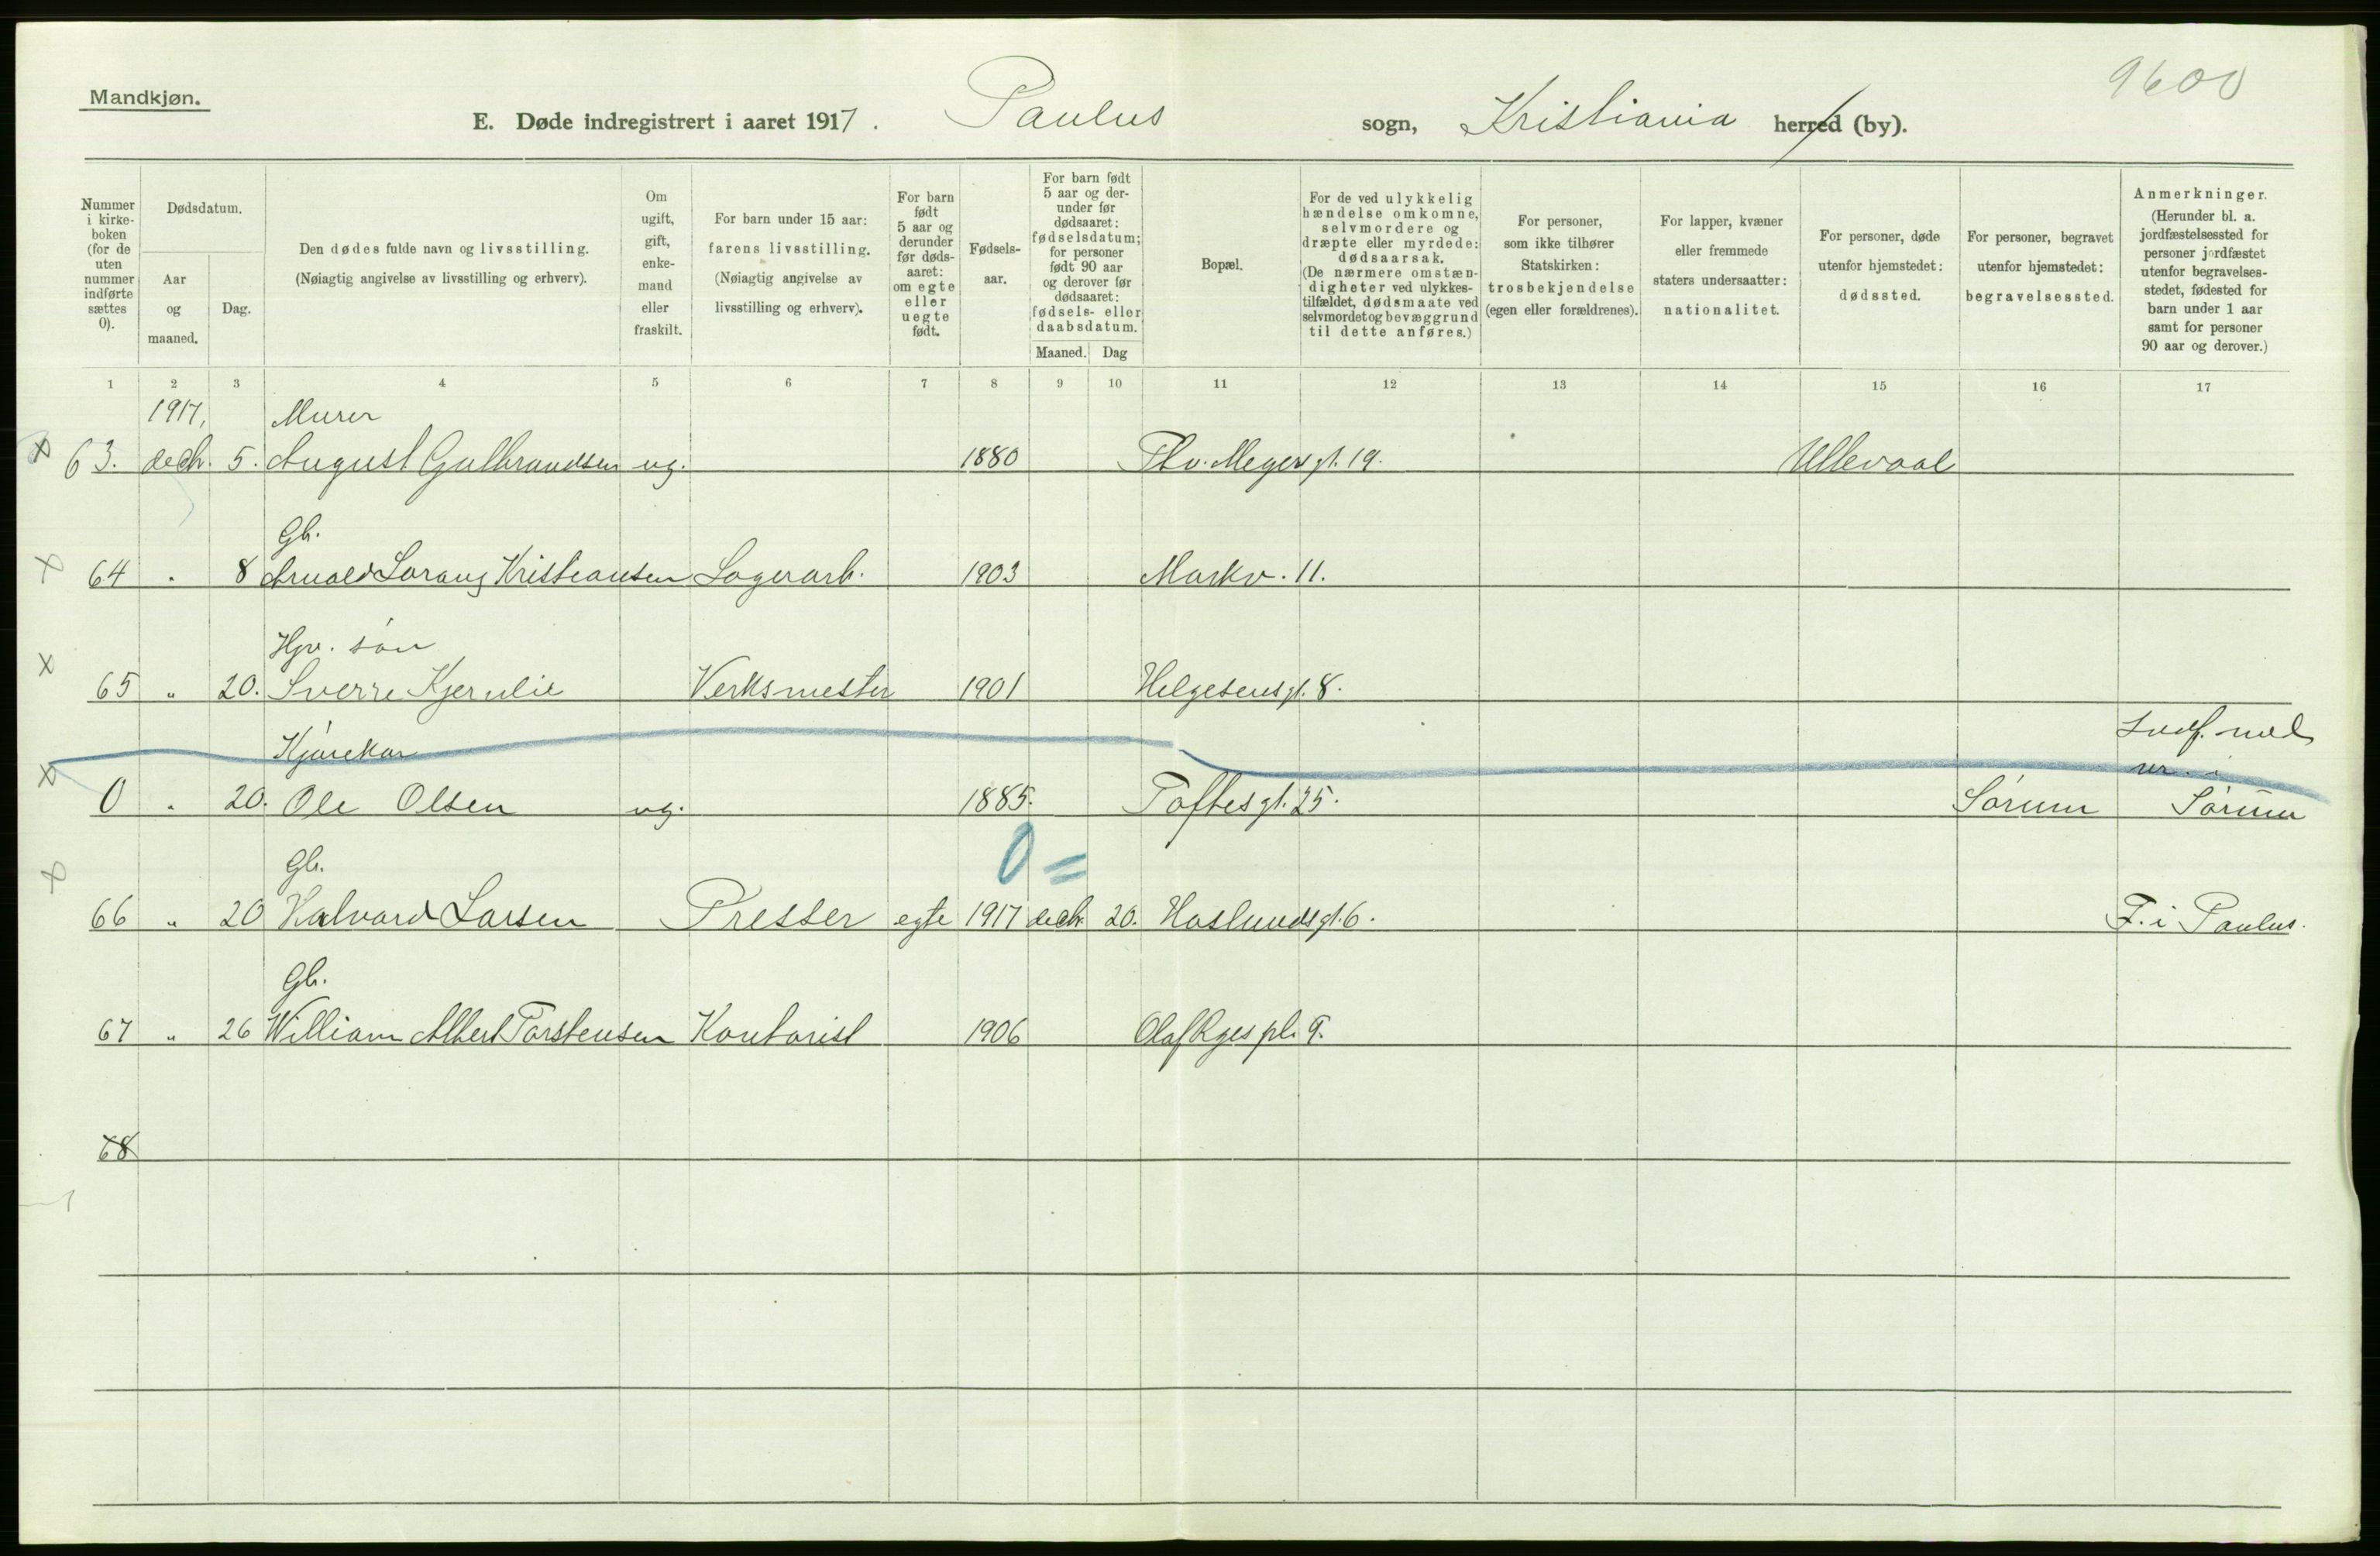 Mandkjøn.
9600
E. Døde indregistrert i aaret 1917. Paulus sogn, Kristiania herred (by).
Nummer i kirke-boken (for de uten nummer indførte sættes 0).
Dødsdatum.
Aar og maaned.
Dag.
Den dødes fulde navn og livsstilling.
(Nøiagtig angivelse av livsstilling og erhverv).
Om ugift, gift, enke-mand eller fraskilt.
For barn under 15 aar: farens livsstilling.
(Nøiagtig angivelse av livsstilling og erhverv).
For barn født 5 aar og derunder før døds-aaret: om egte eller uegte født.
Fødsels-aar.
For barn født 5 aar og der-under før dødsaaret: fødselsdatum; for personer født 90 aar og derover før dødsaaret: fødsels- eller daabsdatum.
Maaned. Dag
Bopæl.
For de ved ulykkelig hændelse omkomne, selvmordere og dræpte eller myrdede: dødsaarsak.
(De nærmere omstæn-digheter ved ulykkes-tilfældet, dødsmaate ved selvmordet og bevæggrund til dette anføres.)
For personer, som ikke tilhører Statskirken: trosbekjendelse (egen eller forældrenes).
For lapper, kvæner eller fremmede staters undersaatter: nationalitet.
For personer, døde utenfor hjemstedet: dødssted.
For personer, begravet utenfor hjemstedet: begravelsessted.
Anmerkninger.
(Herunder bl. a. jordfæstelsessted for personer jordfæstet utenfor begravelses-stedet, fødested for barn under 1 aar samt for personer 90 aar og derover.)
1 2 3 4 5 6 7 8 9 10 11 12 13 14 15 16 17
1917, Murer
x 63. decbr. 5. August Gulbrandsen ug. 1880 Thv. Meyers gt. 19. Ullevaal
Gb.
x 64 " 8 Arnold Lorang Kristiansen Lagerarb. 1903 Markv. 11.
Hjv. søn
x 65 " 20. Sverre Kjernlie Verksmester 1901 Helgesensgt. 8.
Kjørekar Indf. med nr. i
x 0 " 20. Ole Olsen ug. 1885. Toftesgt. 25. Sørum Sørum
0 =
Gb.
x 66 " 20 Halvard Larsen Presser egte 1917 decbr. 20. Haslundsgt. 6. F. i Paulus.
Gb.
67 " 26 William Albert Torstensen Kontorist 1906 Olaf Ryes pl. 9.
68